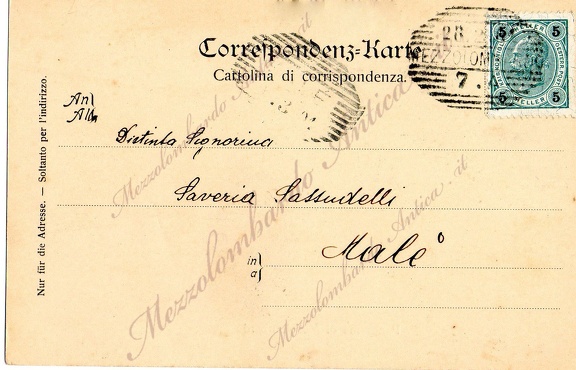 Correspondenz-Karte
Cartolina di corrispondenza.
28
MEZZOLOM
7.
5 5
5 HELLER 5
Nur für die Adresse. — Soltanto per l'indirizzo.
An
Alla
Distinta Signorina
Saveria Sassudelli
Malè
in
a
Mezzolombardo Antica.it
Mezzolombardo Antica.it
Mezzolombardo Antica.it